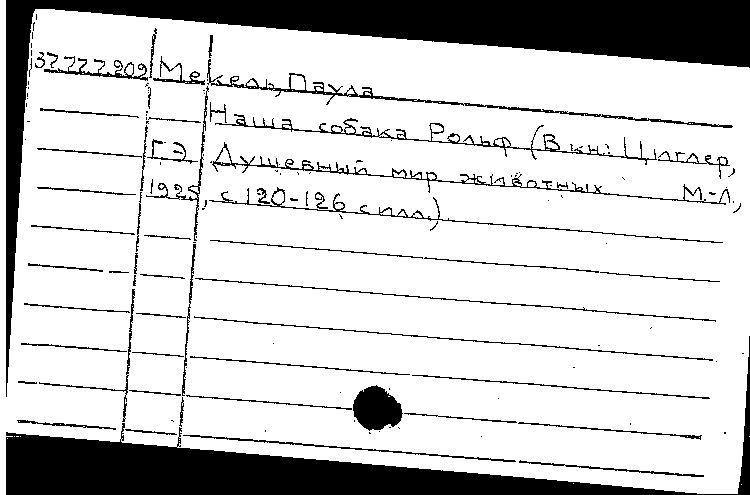 37.27.7.209 Мекель, Паула
Наша собака Рольф (В кн: Циглер,
Г.Э. Душевный мир животных М.-Л.,
1925, с 120-126 с илл.)